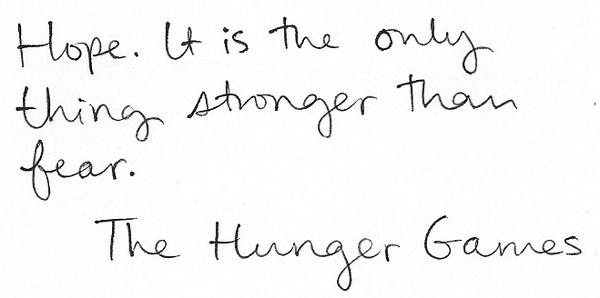 Hope. It is the only
thing stronger than
fear.
The Hunger Games